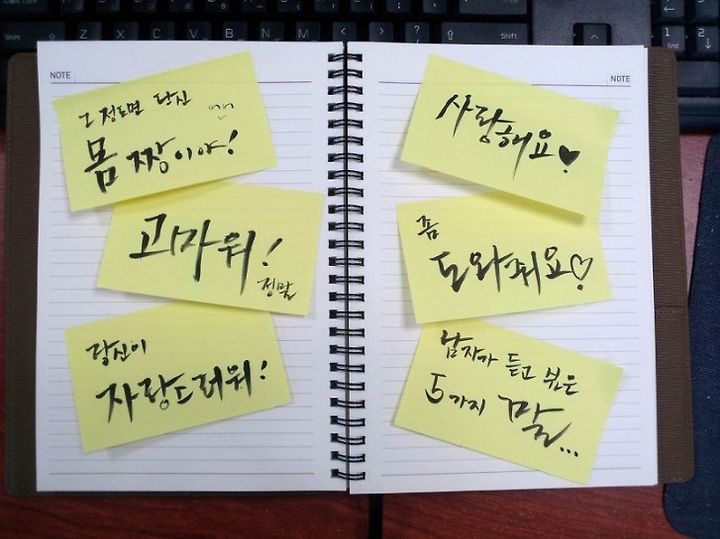 NOTE
그 정도면 당신
몸짱이야!
고마워!
정말
당신이
자랑스러워!
NOTE
사랑해요♥
좀
도와줘요♡
남자가 듣고 싶은
5가지 말...